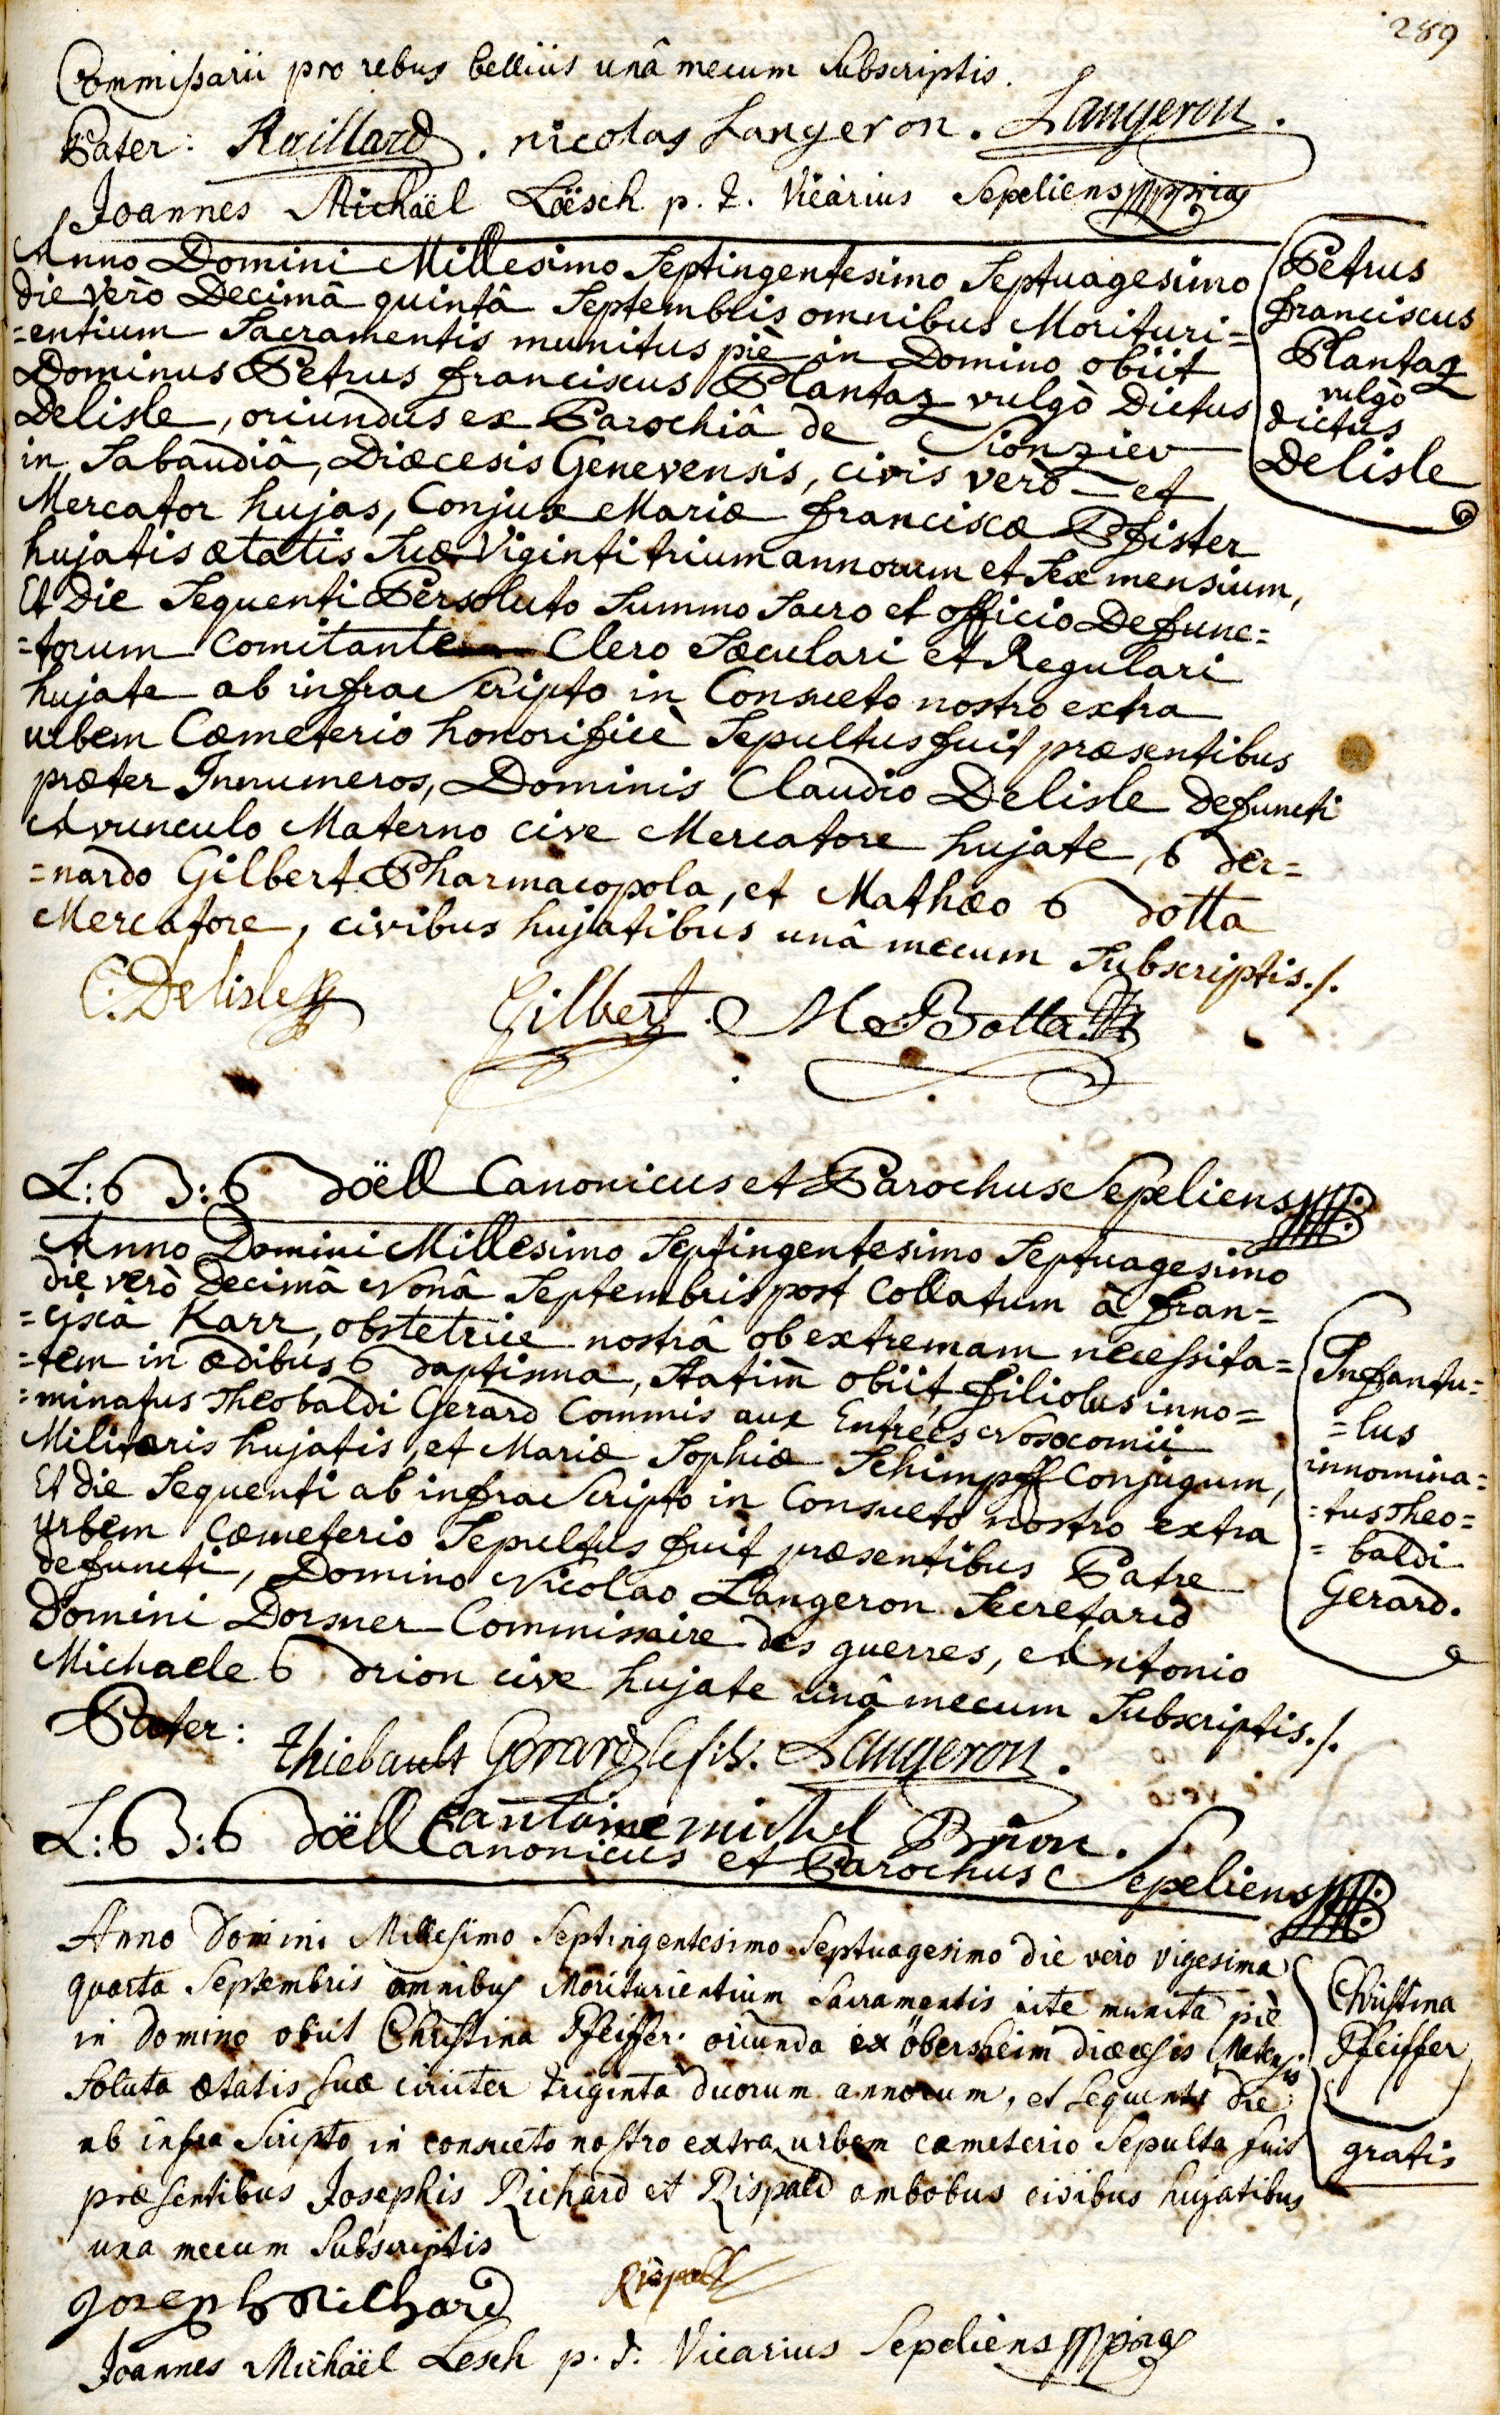 289
Commissarii pro rebus bellius unâ mecum Subscriptis.
Pater: Raillard. nicolas Langeron. Langeron.
Joannes Michaël Löesch p. t. Vicarius Sepeliens
Anno Domini Millesimo Septingentesimo Septuagesimo
die verò Decimâ quintâ Septembris omnibus Morituri=
=entium Sacramentis munitus piè in Domino obiit
Dominus Petrus franciscus Plantaz vulgò Dictus
Delisle, oriundus ex Parochiâ de Sionzier
in Sabaudiâ, Diœcesis Genevensis, civis verò et
Mercator hujas, Conjux Mariæ franciscæ Pfister
hujatis ætatis Suæ Viginti trium annorum et Sex mensium,
Et Die Sequenti Persoluto Summo Sacro et officio Defunc=
=torum Comitante Clero Sæculari et Regulari
hujate ab infra Scripto in Consueto nostro extra
urbem Cœmeterio honorificè Sepultus fuit præsentibus
præter Innumeros, Dominis Claudio Delisle defuncti
Avunculo Materno cive Mercatore hujate, Ber=
=nardo Gilbert Pharmacopola, et Mathæo Botta
Mercatore, civibus hujatibus unâ mecum Subscriptis./.
Petrus
franciscus
Plantaz
vulgò
dictus
Delisle
C: Delisle Gilbert. M Botta
L: B J: B Boëll Canonicus et Parochus Sepeliens
Anno Domini Millesimo Septingentesimo Septuagesimo
die verò Decimâ Nonâ Septembris post Collatum à fran=
=ciscâ Karr, obstetrice nostrâ ob extremam necessita=
=tem in ædibus Baptisma, Statim obiit, filiolus inno=
=minatus Theobaldi Gerard Commis aux Entrées Nosocomii
Militaris hujatis, et Mariæ Sophiæ Schimpff Conjugum,
Et die Sequenti ab infra Scripto in Consueto nostro extra
urbem Cœmeterio Sepultus fuit præsentibus Patre
defuncti, Domino Nicolao Langeron Secretario
Domini Dorsner Commissaire des guerres, Antonio
Michaele Brion cive hujate unâ mecum Subscriptis./.
Infantu=
=lus
innomina=
=tus Theo=
=baldi
Gerard.
Pater: thiebault Gerard le fils. Langeron.
antoine michel Brion.
L: B J: B Boëll Canonicus et Parochus Sepeliens
Anno Domini Millesimo Septingentesimo Septuagesimo die vero vigesima
quarta Septembris omnibus Moriturientium Sacramentis rite munita piè
in Domino obiit Christina Pfeiffer oriunda ex öbersheim diœcesis Metensis
Soluta ætatis suæ circiter triginta duorum annorum, et sequenti die
ab infra Scripto in consueto nostro extra urbem cœmeterio Sepulta fuit
præsentibus Josephis Richard et Rispald ambobus civibus hujatibus
una mecum Subscriptis
Christina
Pfeiffer
gratis
Joseph Richard Rispald
Joannes Michaël Lesch p. t. Vicarius Sepeliens